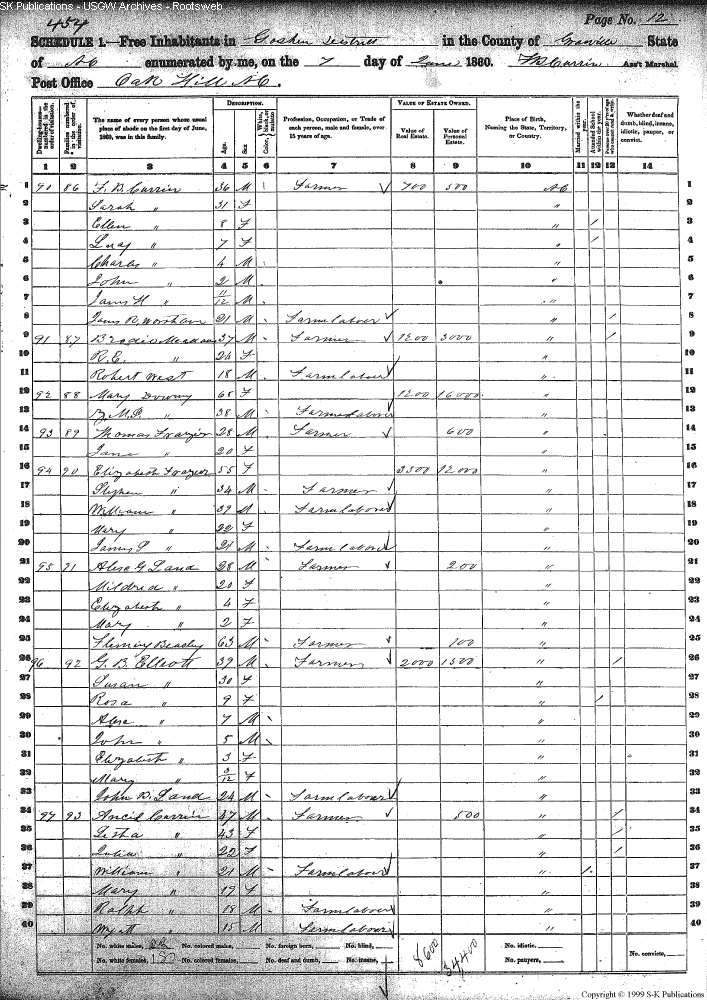 SK Publications - USGW Archives - Rootsweb
454
Page No. 12
SCHEDULE 1.—Free Inhabitants in Goshen District in the County of Granville State
of NC enumerated by me, on the 7 day of June 1860. Ass't Marshal.
Post Office Oak Hill NC.
Dwelling-houses numbered in the order of visitation.
Families numbered in the order of visitation.
The name of every person whose usual place of abode on the first day of June, 1860, was in this family.
DESCRIPTION.
Age.
Sex
Color,
Profession, Occupation, or Trade of each person, male and female, over 15 years of age.
VALUE OF ESTATE OWNED.
Value of Real Estate.
Value of Personal Estate.
Place of Birth, Naming the State, Territory, or Country.
Married within the year.
Attended School within the year.
Whether deaf and dumb, blind, insane, idiotic, pauper, or convict.
1 2 3 4 5 6 7 8 9 10 11 12 13 14
1 90 86 F. B. Currin 36 M Farmer 700 500 NC 1
2 Sarah " 31 F " 2
3 Ellen " 8 F " / 3
4 " 7 F " / 4
5 Charles " 4 M " 5
6 John " 2 M " 6
7 James H " 11/12 M " 7
8 James R. Worsham 21 M Farm labour " / 8
9 91 87 37 M Farmer 1200 3000 " / 9
10 R. E. " 24 F " 10
11 Robert West 18 M Farm labour " 11
12 92 88 Mary Downy 65 F 1200 16000 " 12
13 " 38 M " 13
14 93 89 Thomas Frazier 28 M Farmer 600 " 14
15 Jane " 20 F " 15
16 94 90 Elizabeth Frazier 55 F 3500 12000 " 16
17 Stephen " 34 M Farmer " 17
18 William " 39 M Farm labour " 18
19 Mary " 22 F " 19
20 James P " 21 M Farm labour " 20
21 95 91 Alexr G Land 28 M Farmer 200 " 21
22 Mildred " 20 F " 22
23 Elizabeth " 4 F " 23
24 Mary " 2 F " 24
25 Fleming Beasley 63 M Farmer 100 " 25
26 96 92 G. B. Elliott 39 M Farmer 2000 1500 " / 26
27 Susan " 30 F " 27
28 Rosa " 9 F " / 28
29 Alexr " 7 M " 29
30 John " 5 M " 30
31 Elizabeth " 3 F " 31
32 Mary " 3/12 F " 32
33 John B. Land 24 M Farm labour " 33
34 97 93 Ancil Currin 47 M Farmer 500 " / 34
35 " 43 F " / 35
36 Julia " 22 F " / 36
37 William " 21 M Farm labour " / 37
38 Mary " 19 F " 38
39 Ralph " 18 M Farm labour " 39
40 Wyatt " 15 M Farm labour " 40
No. white males, No. colored males, No. foreign born, No. blind, 8600 34400 No. idiotic. No. convicts,
No. white females, No. colored females, No. deaf and dumb, No. insane, No. paupers,
Copyright © 1999 S-K Publications